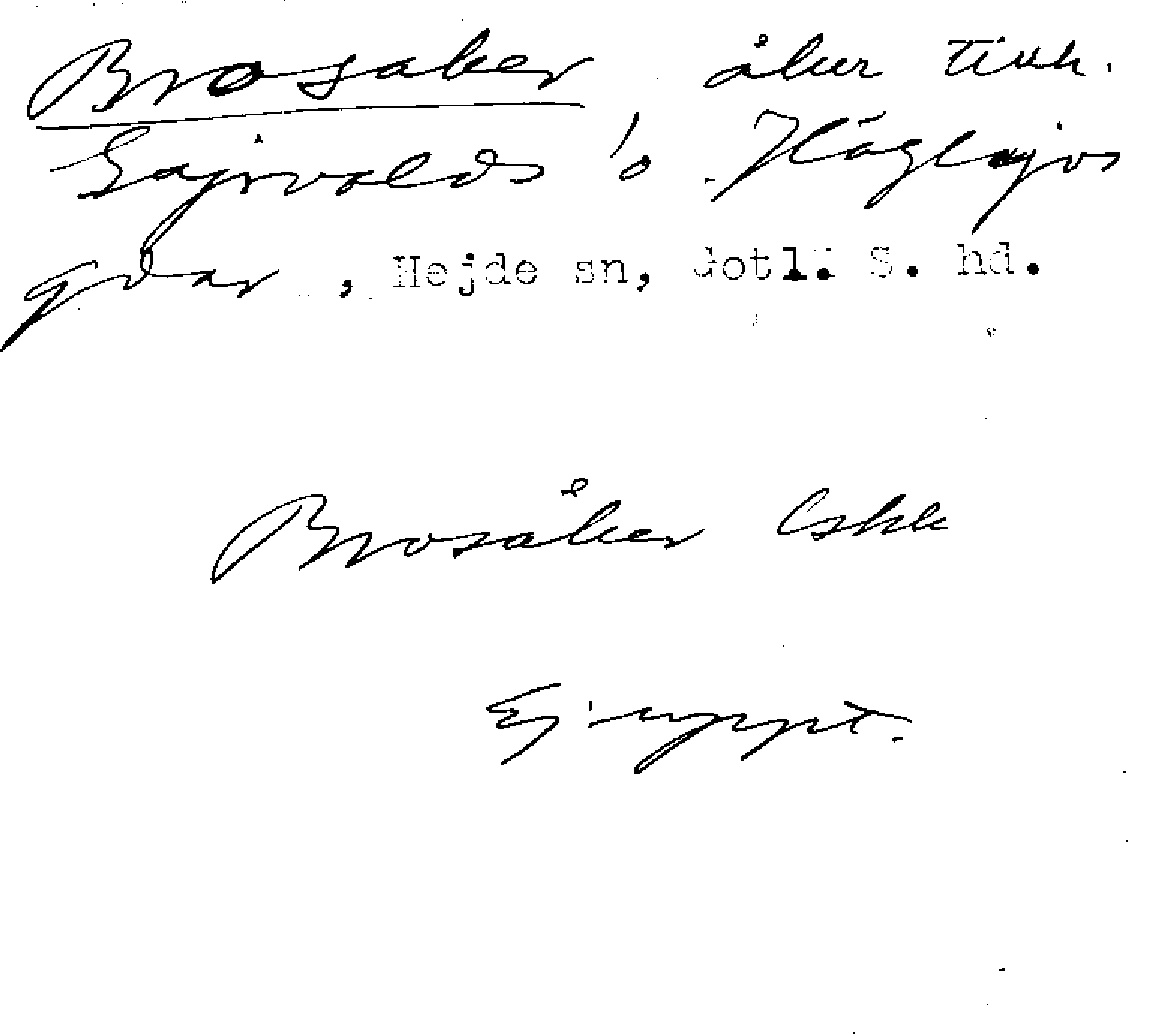 Brosaker åker tillh.
Gajrvalds 1/2 Häglajvs
gdar, Hejde sn, Gotl. S. hd.
Brosåker Lskk
Ej uppt.